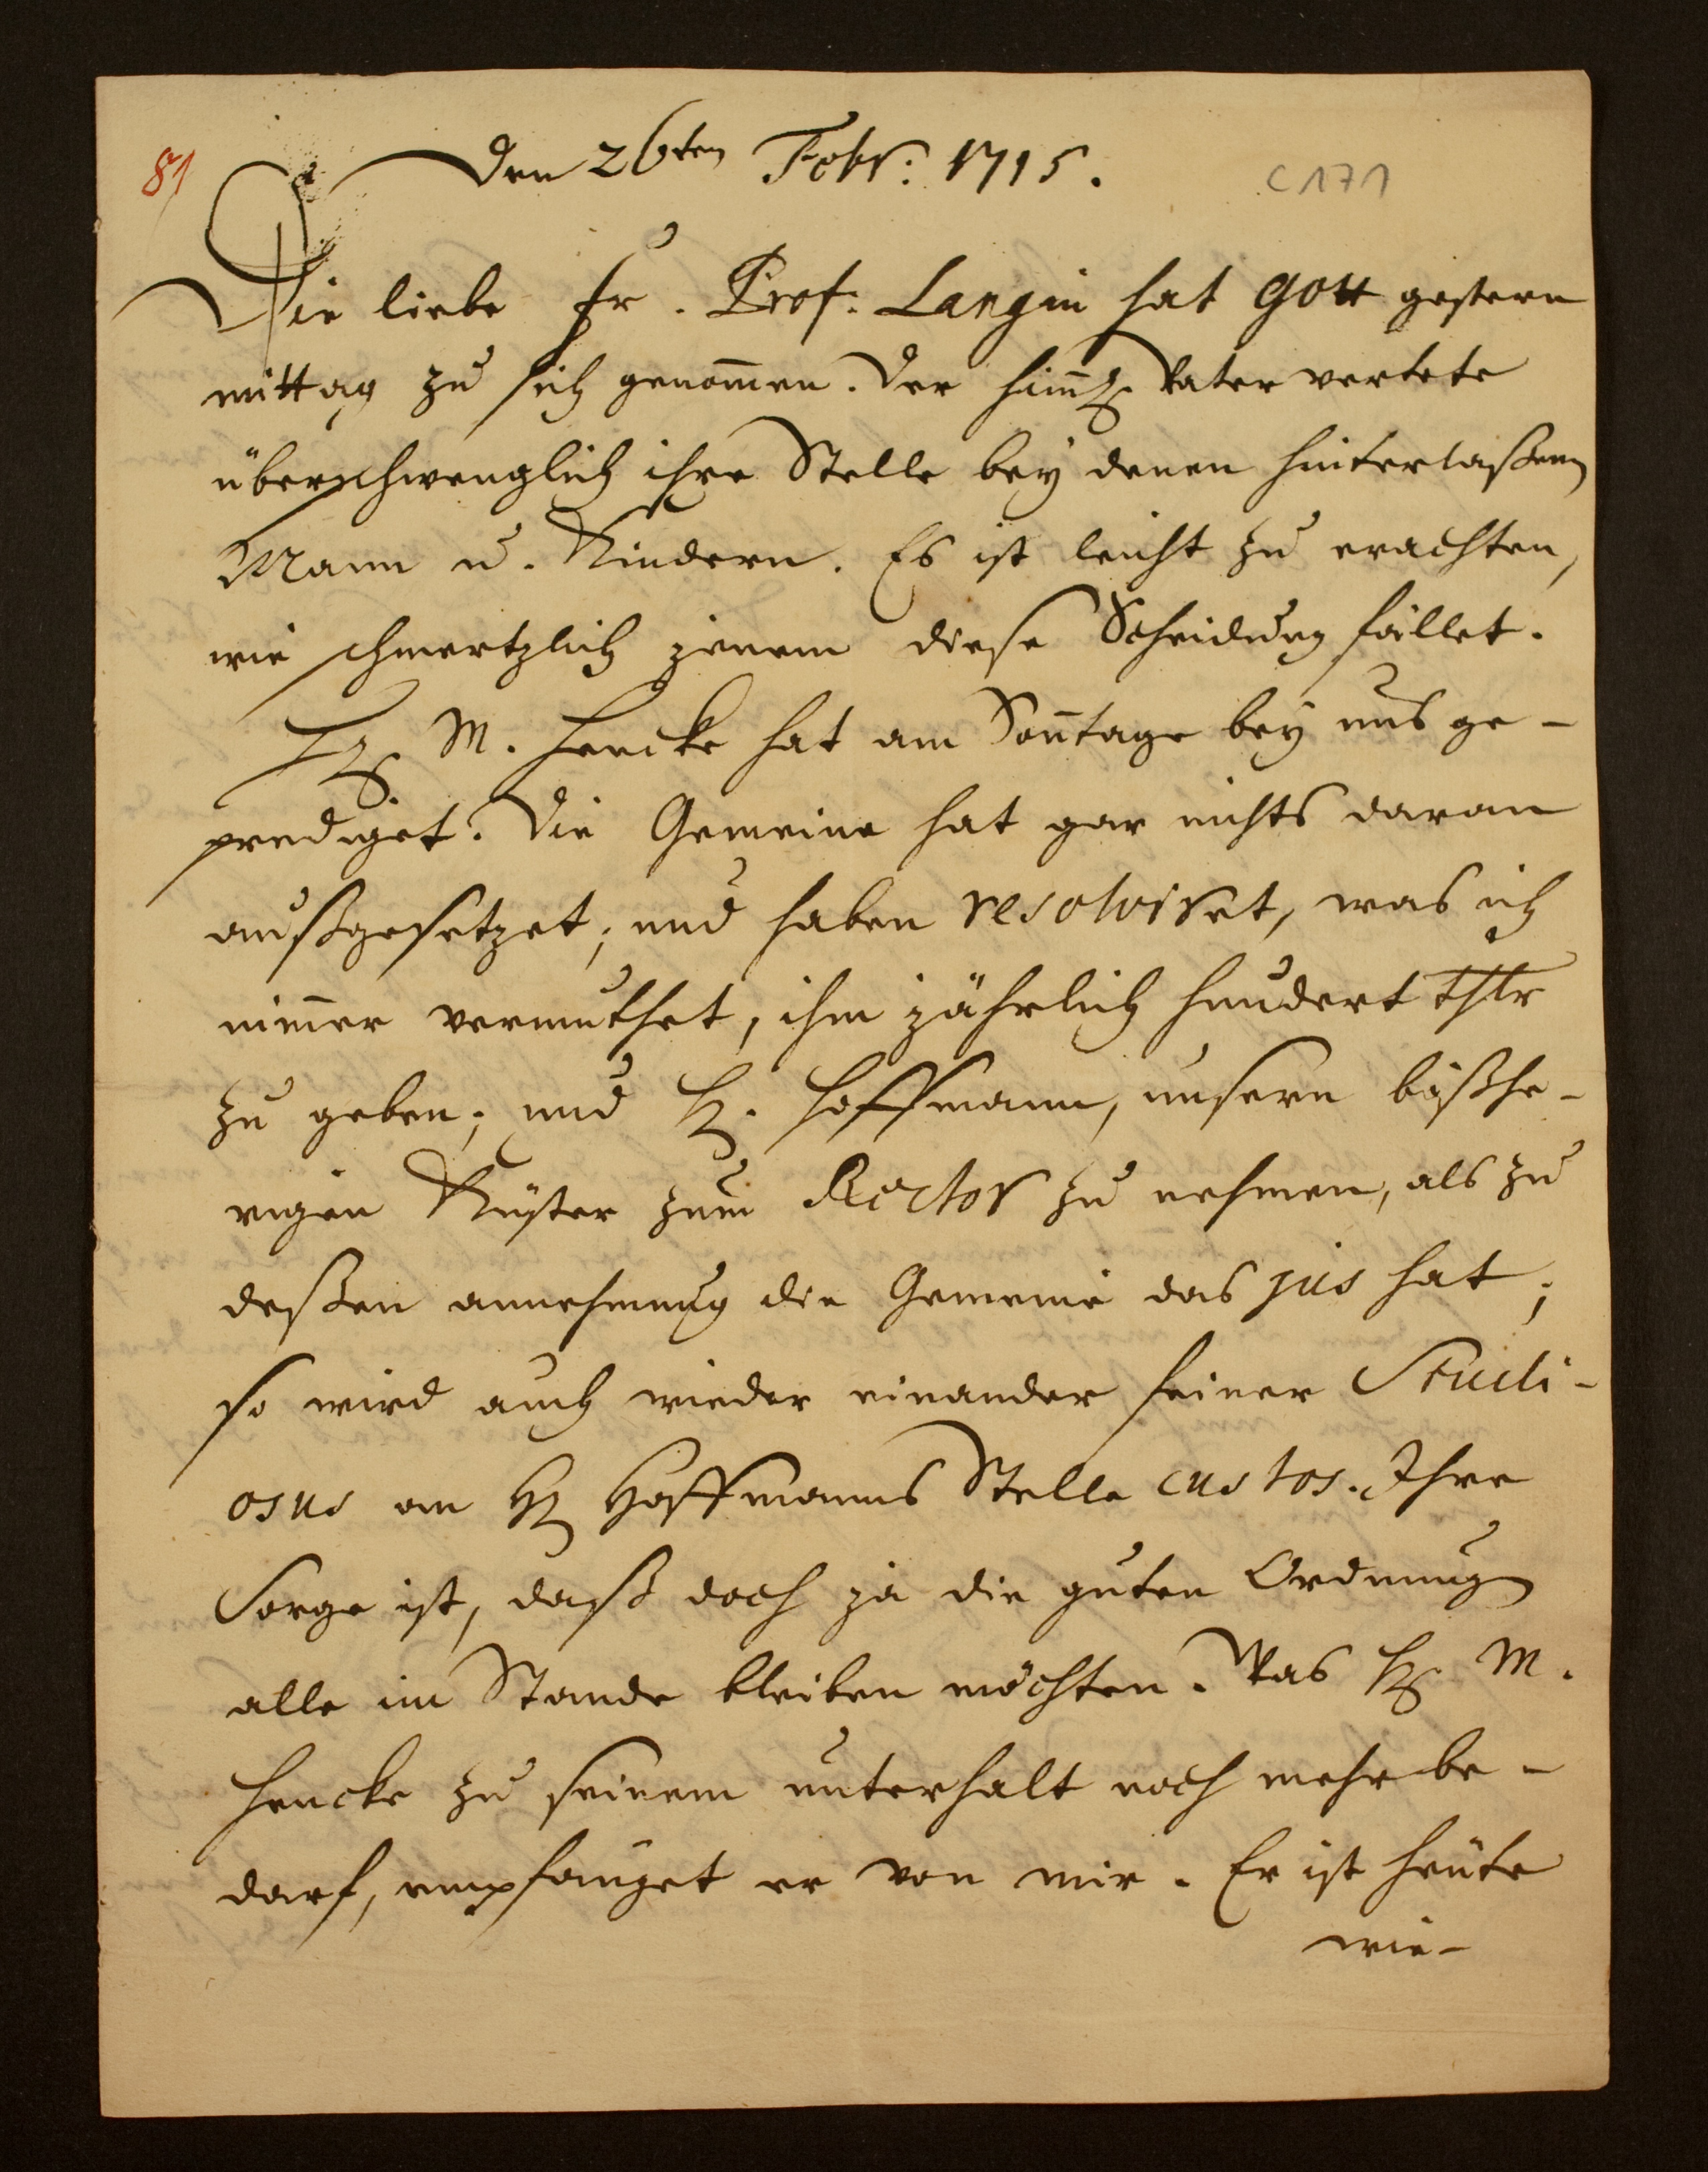 81
Den 26ten Febr: 1715.
C 171
Die liebe Fr. Prof. Langin hat Gott gestern
mittag zu sich genom̅en. Der him̅l. Vater vertrete
überschwenglich ihre Stelle bey denen hinterlaßenen
Mann u. Kindern. Es ist leicht zu erachten,
wie schmertzlich jenem diese Scheidung fället.
Hr. M. Hencke hat am Son̅tage bey uns ge-
prediget. Die Gemeine hat gar nichts daran
außgesetzet; und haben resolviret, was ich
nim̅er vermuthet, ihm jährlich hundert Thlr
zu geben; und H. Hoffmann, unsern bißhe-
rigen Küster zum Rector zu nehmen, als zu
deßen annehmung die Gemeine das jus hat;
so wird auch wieder einander feiner Studi-
osus an H. Hoffmanns Stelle custos. Ihre
Sorge ist, daß doch ja die guten Ordnungen
alle im Stande bleiben möchten. Was Hr. M.
Hencke zu seinem unterhalt noch mehr be-
darf, empfänget er von mir. Er ist heute
wie-